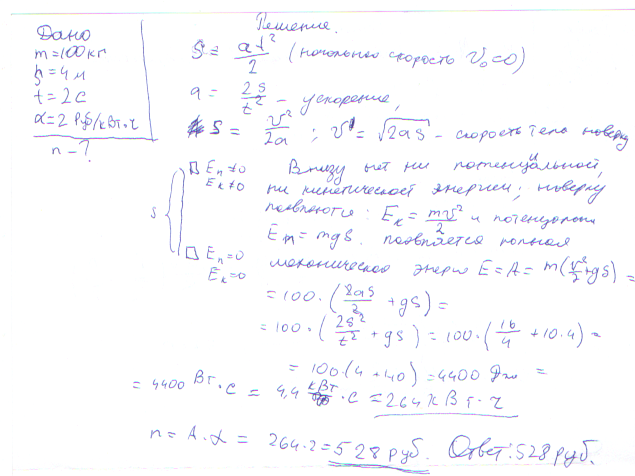 Дано
m = 100 кг
h = 4 м
t = 2 с
α = 2 руб/кВт·ч
n - ?
Решение.
S = at²/2 (начальная скорость V₀ = 0)
a = 2s/t² - ускорение,
S = v²/2a ; v = √2as - скорость тела наверху
S
Eп ≠ 0
Eк ≠ 0
Eп = 0
Eк = 0
Внизу нет ни потенциальной,
ни кинетической энергии; наверху
появляются: Eк = mv²/2 и потенциальная
Eп = mgs. появляется полная
механическая энергия E = A = m(v²/2 + gs) =
= 100·(2as/2 + gs) =
= 100·(2s²/t² + gs) = 100·(16/4 + 10·4) =
= 100(4 + 40) = 4400 Дж =
= 4400 Вт·с = 4,4 кВт·с = 264 кВт·ч
n = A·α = 264·2 = 528 руб. Ответ: 528 руб.